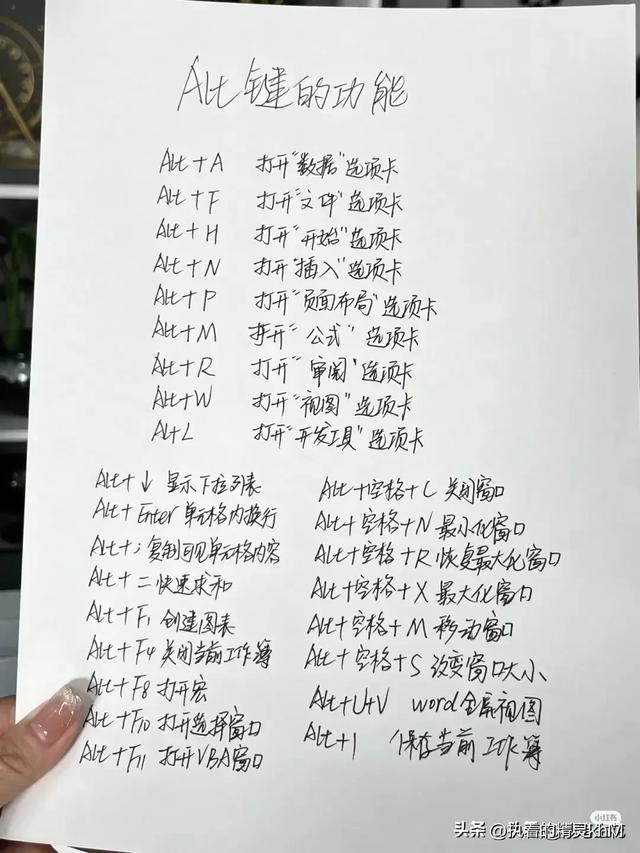 Alt键的功能
Alt+A 打开"数据"选项卡
Alt+F 打开"文件"选项卡
Alt+H 打开"开始"选项卡
Alt+N 打开"插入"选项卡
Alt+P 打开"页面布局"选项卡
Alt+M 打开"公式"选项卡
Alt+R 打开"审阅"选项卡
Alt+W 打开"视图"选项卡
Alt+L 打开"开发工具"选项卡
Alt+↓ 显示下拉列表
Alt+Enter 单元格内换行
Alt+; 复制可见单元格内容
Alt+= 快速求和
Alt+F1 创建图表
Alt+F4 关闭当前工作簿
Alt+F8 打开宏
Alt+F10 打开选择窗口
Alt+F11 打开VBA窗口
Alt+空格+C 关闭窗口
Alt+空格+N 最小化窗口
Alt+空格+R 恢复最大化窗口
Alt+空格+X 最大化窗口
Alt+空格+M 移动窗口
Alt+空格+S 改变窗口大小
Alt+U+V word全屏视图
Alt+1 保存当前工作簿
小红书
头条 @执着的精灵